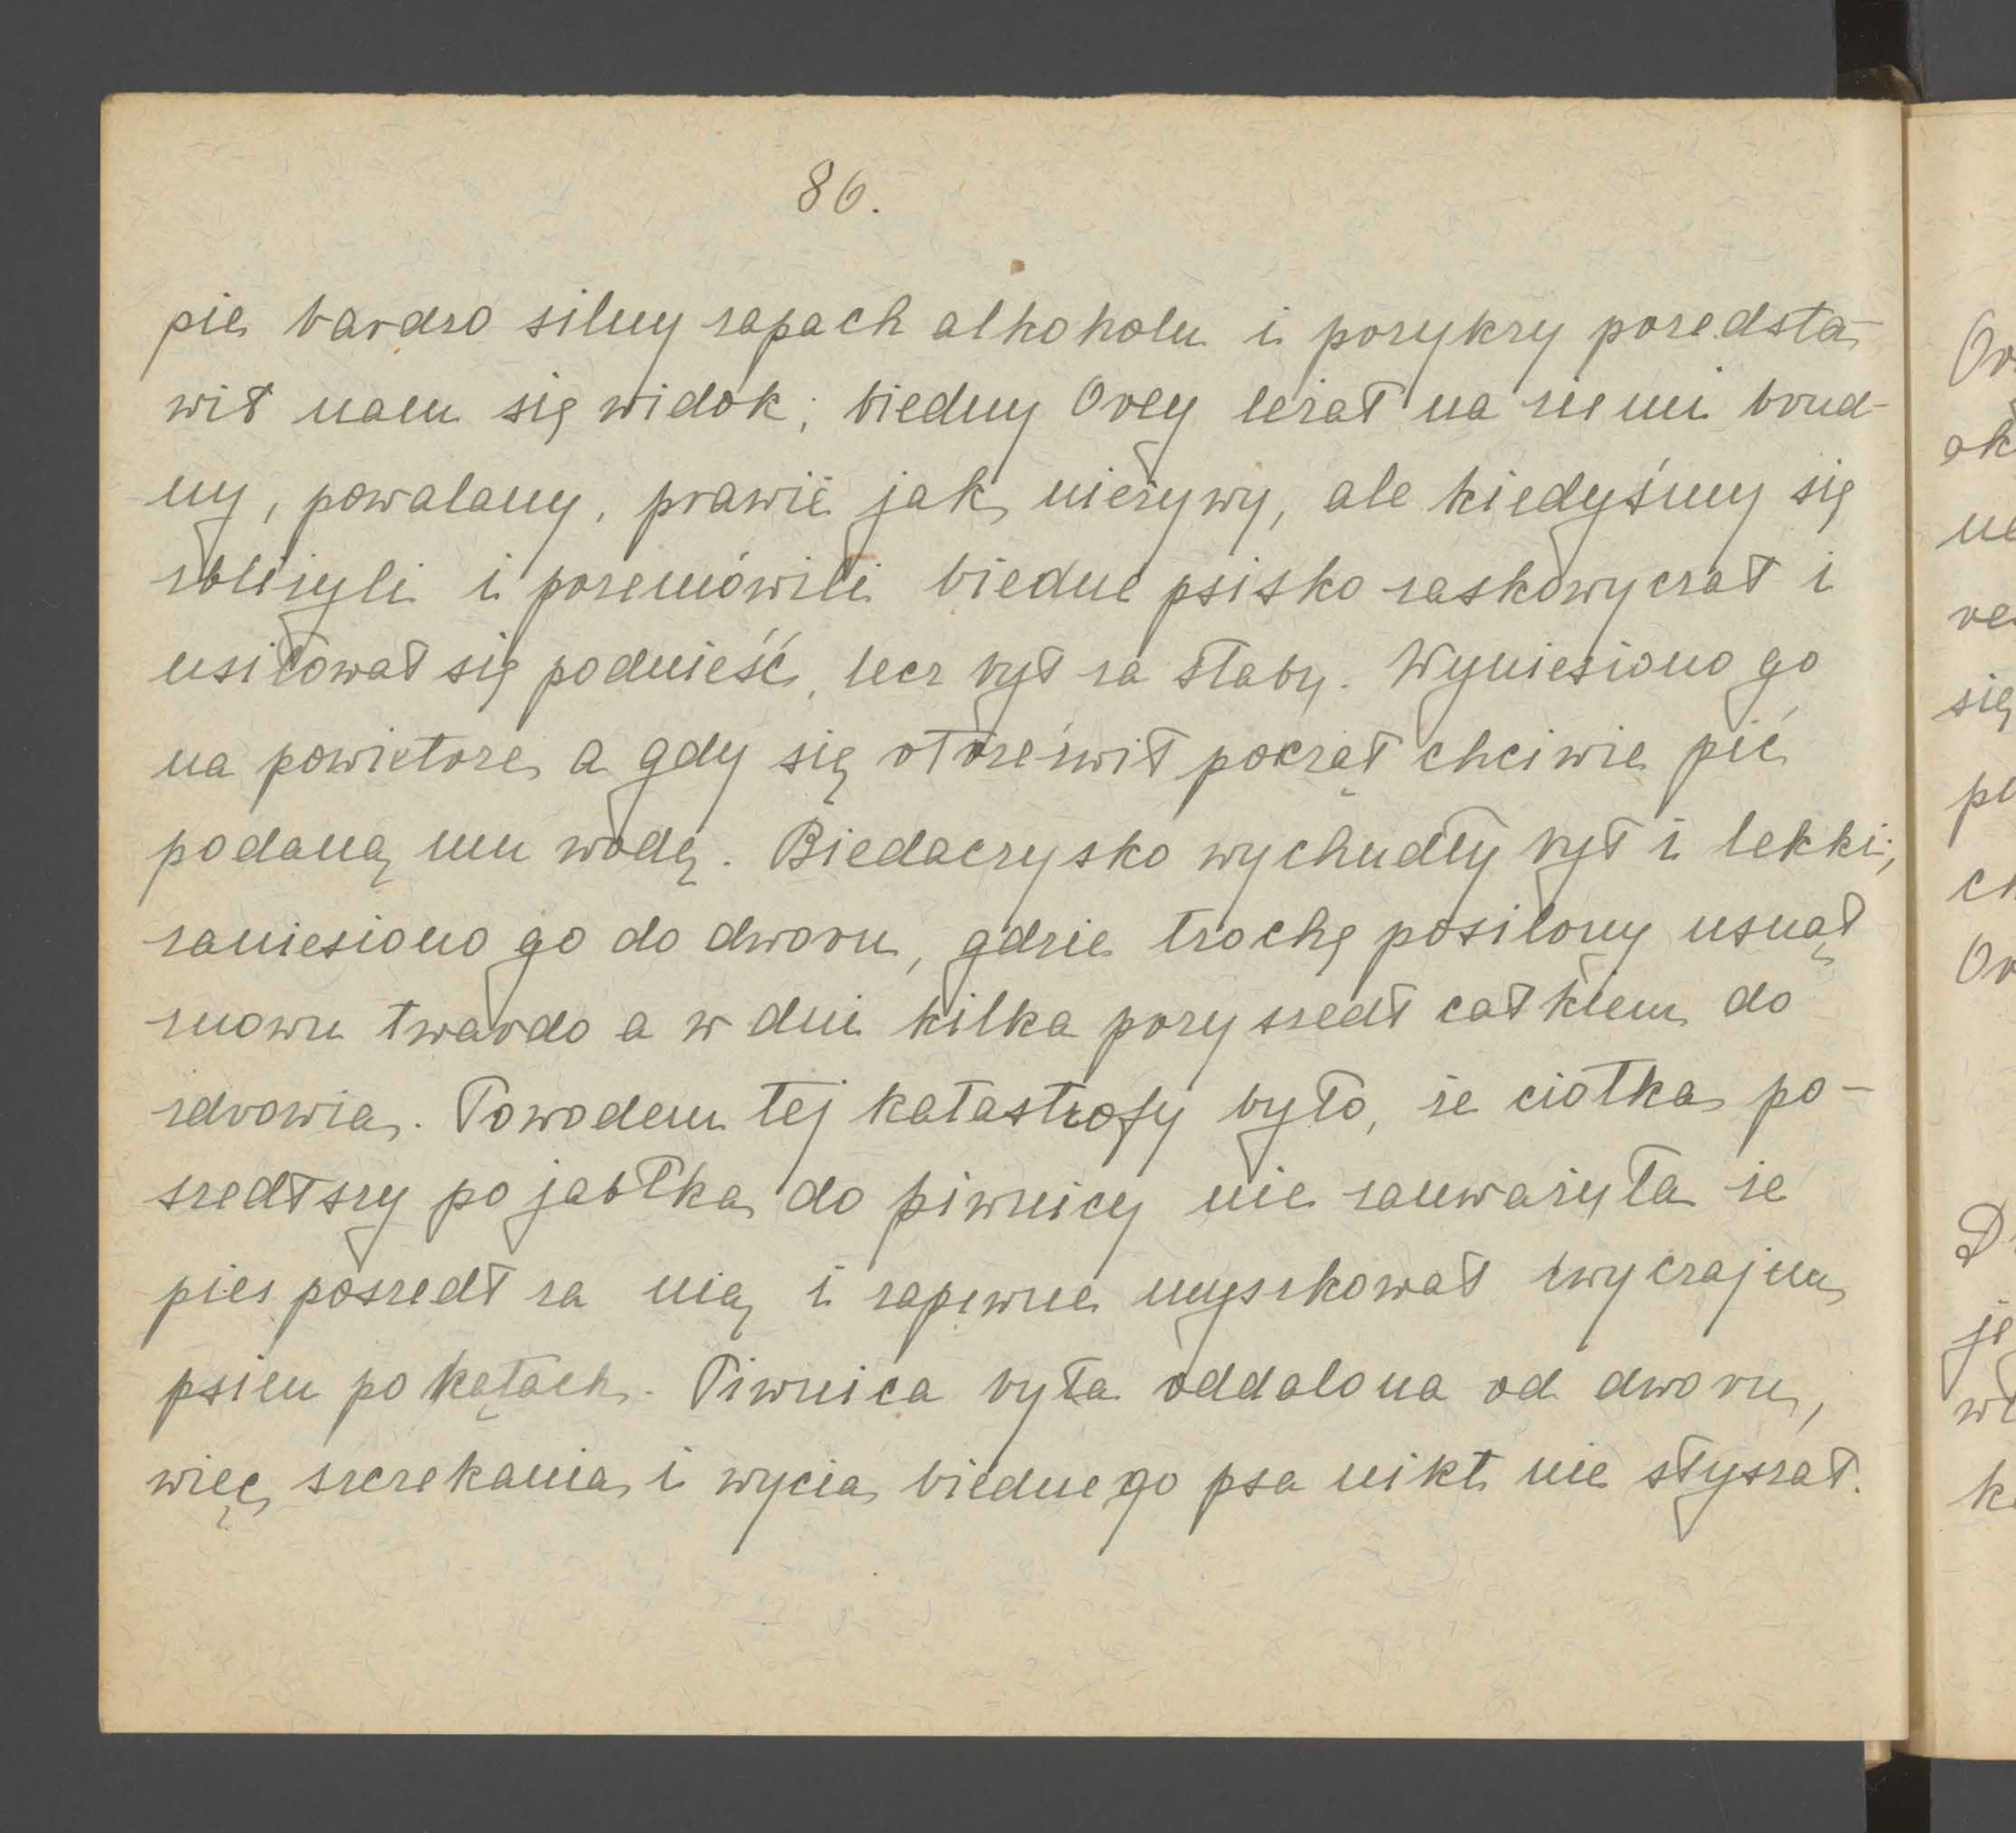 86.
pie bardzo silny zapach alkoholu i przykry przedsta-
wił nam się widok; biedny Orey leżał na ziemi brud-
ny, powalany, prawie jak nieżywy, ale kiedyśmy się
zbliżyli i przemówili biedne psisko zaskowyczał i
usiłował się podnieść, lecz był za słaby. Wyniesiono go
na powietrze a gdy się otrzeźwił począł chciwie pić
podaną mu wodę. Biedaczysko wychudły był i lekki;
zaniesiono go do dworu, gdzie trochę posilony usnął
znowu twardo a w dni kilka przyszedł całkiem do
zdrowia. Powodem tej katastrofy było, że ciotka po-
szedłszy po jabłka do piwnicy nie zauważyła że
pies poszedł za nią i zapewne myszkował zwyczajem
psiem po kątach. Piwnica była oddalona od dworu,
więc szczekania i wycia biednego psa nikt nie słyszał.